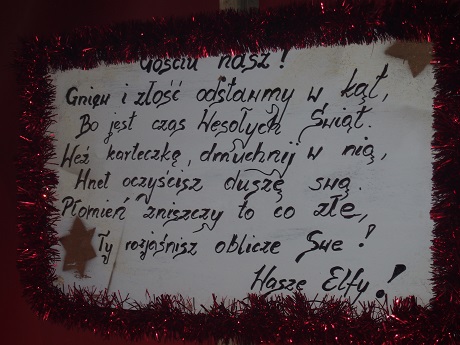 Gościu nasz!
Gniew i złość odstawmy w kąt,
Bo jest czas Wesołych Świąt.
Weź karteczkę, dmuchnij w nią,
Hnet oczyścisz duszę swą.
Płomień zniszczy to co złe,
Ty rozjaśnisz oblicze Swe!
Nasze Elfy!